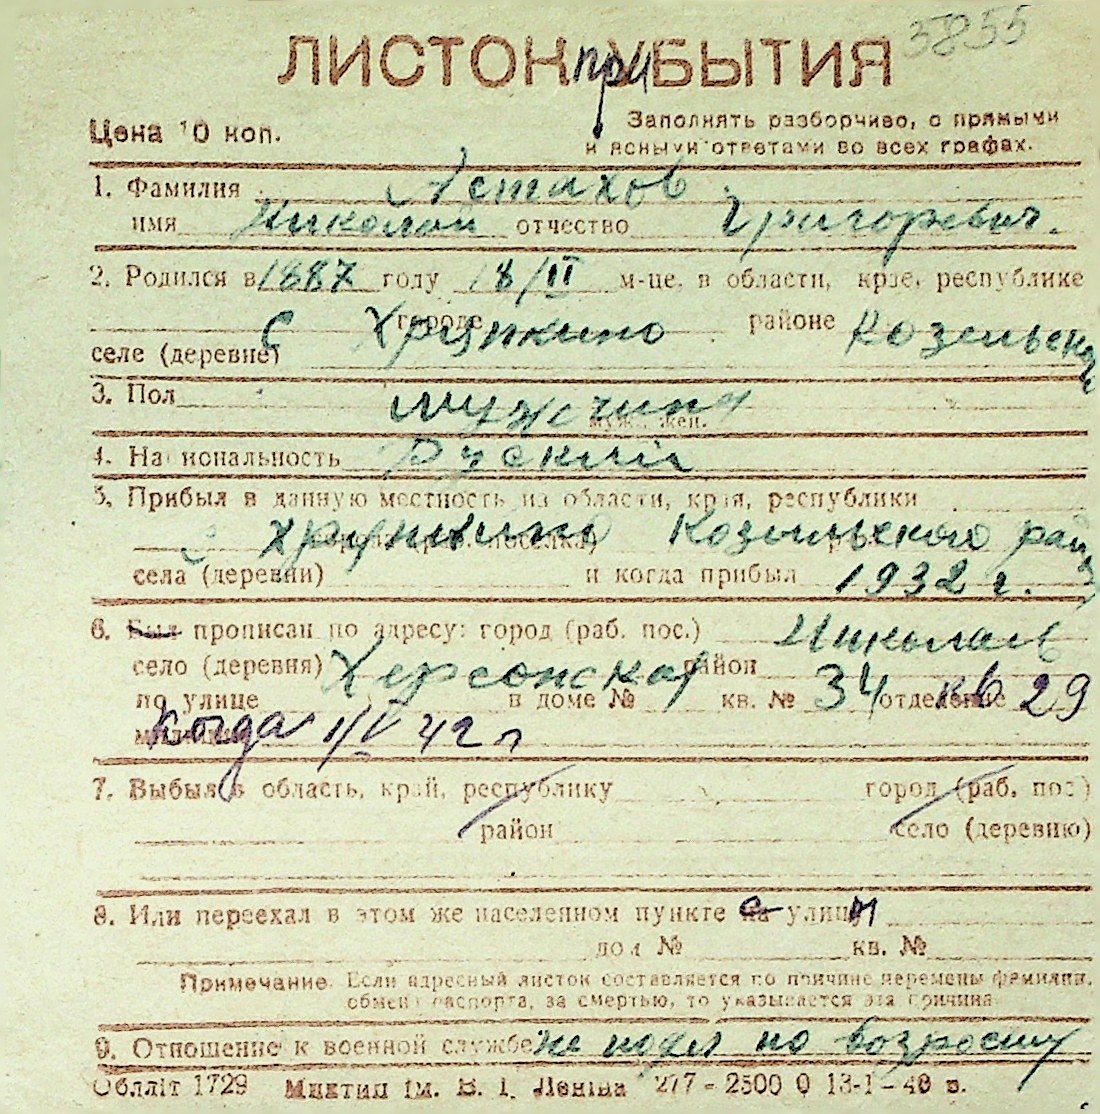 3855
ЛИСТОК при УБЫТИЯ
Цена 10 коп.
Заполнять разборчиво, с прямыми
и ясными ответами во всех графах.
1. Фамилия Астахов
имя Николай отчество Григоревич.
2. Родился в 1887 году 18/II м-це, в области, крае, республике
городе районе Козельского
селе (деревне) с
3. Пол мужчина
муж., жен.
4. Национальность Руский
5. Прибыл в данную местность из области, края, республики
с Козельского района
села (деревни) и когда прибыл 1932 г.
6. Был прописан по адресу: город (раб. пос.) Николаев
село (деревня) Херсонская район
по улице в доме № кв. № 34 отделение кв 29
милиции когда 1/V 42 г
7. Выбыл в область, край, республику город (раб. пос.)
район село (деревню)
8. Или переехал в этом же населенном пункте на с улицы
дом № кв. №
Примечание. Если адресный листок составляется по причине перемены фамилии,
обмена паспорта, за смертью, то указывается эта причина.
9. Отношение к военной службе не по возросту
Облліт 1729 Миктип ім. В. І. Леніна 277 - 2500 0 13-1-40 в.